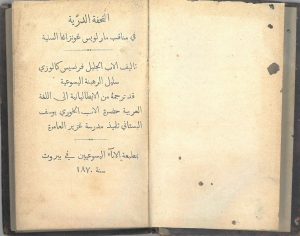 التحفة السَّرِيَّة
في مناقب مار لويس غونزاغا السنية
تاليف الاب الجليل فرنسيس كالوزي
سليل الرهبنة اليسوعية
قد ترجمهُ من الايطاليانية الى اللغة
العربية حضرة الاب الخوري يوسف
البستاني تلميذ مدرسة غزير العامرة
بمطبعة الاباء اليسوعيين في بيروت
سنة ١٨٧٠